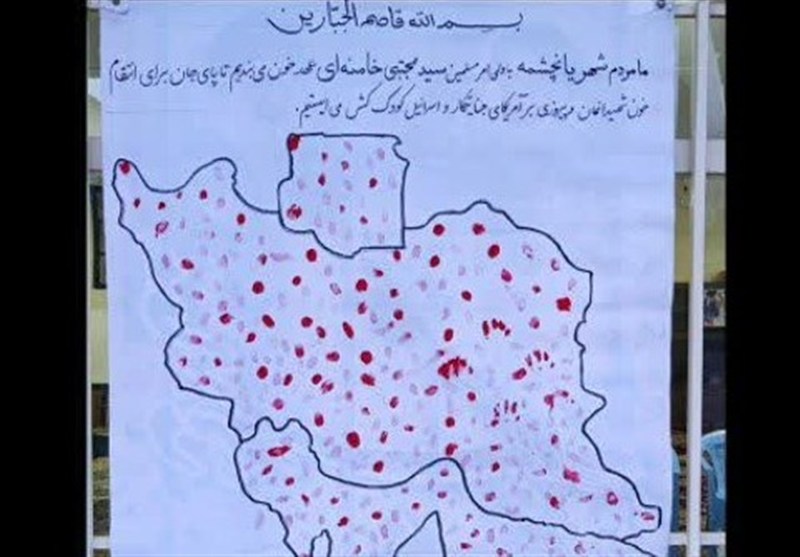 بسم الله قاصم الجبّارین
ما مردم شهر یانچشمه با ولی امر مسلمین سید مجتبی خامنه‌ای عهد خون می‌بندیم تا پای جان برای انتقام
خون شهیدانمان و پیروزی بر آمریکای جنایتکار و اسرائیل کودک کش می‌ایستیم.